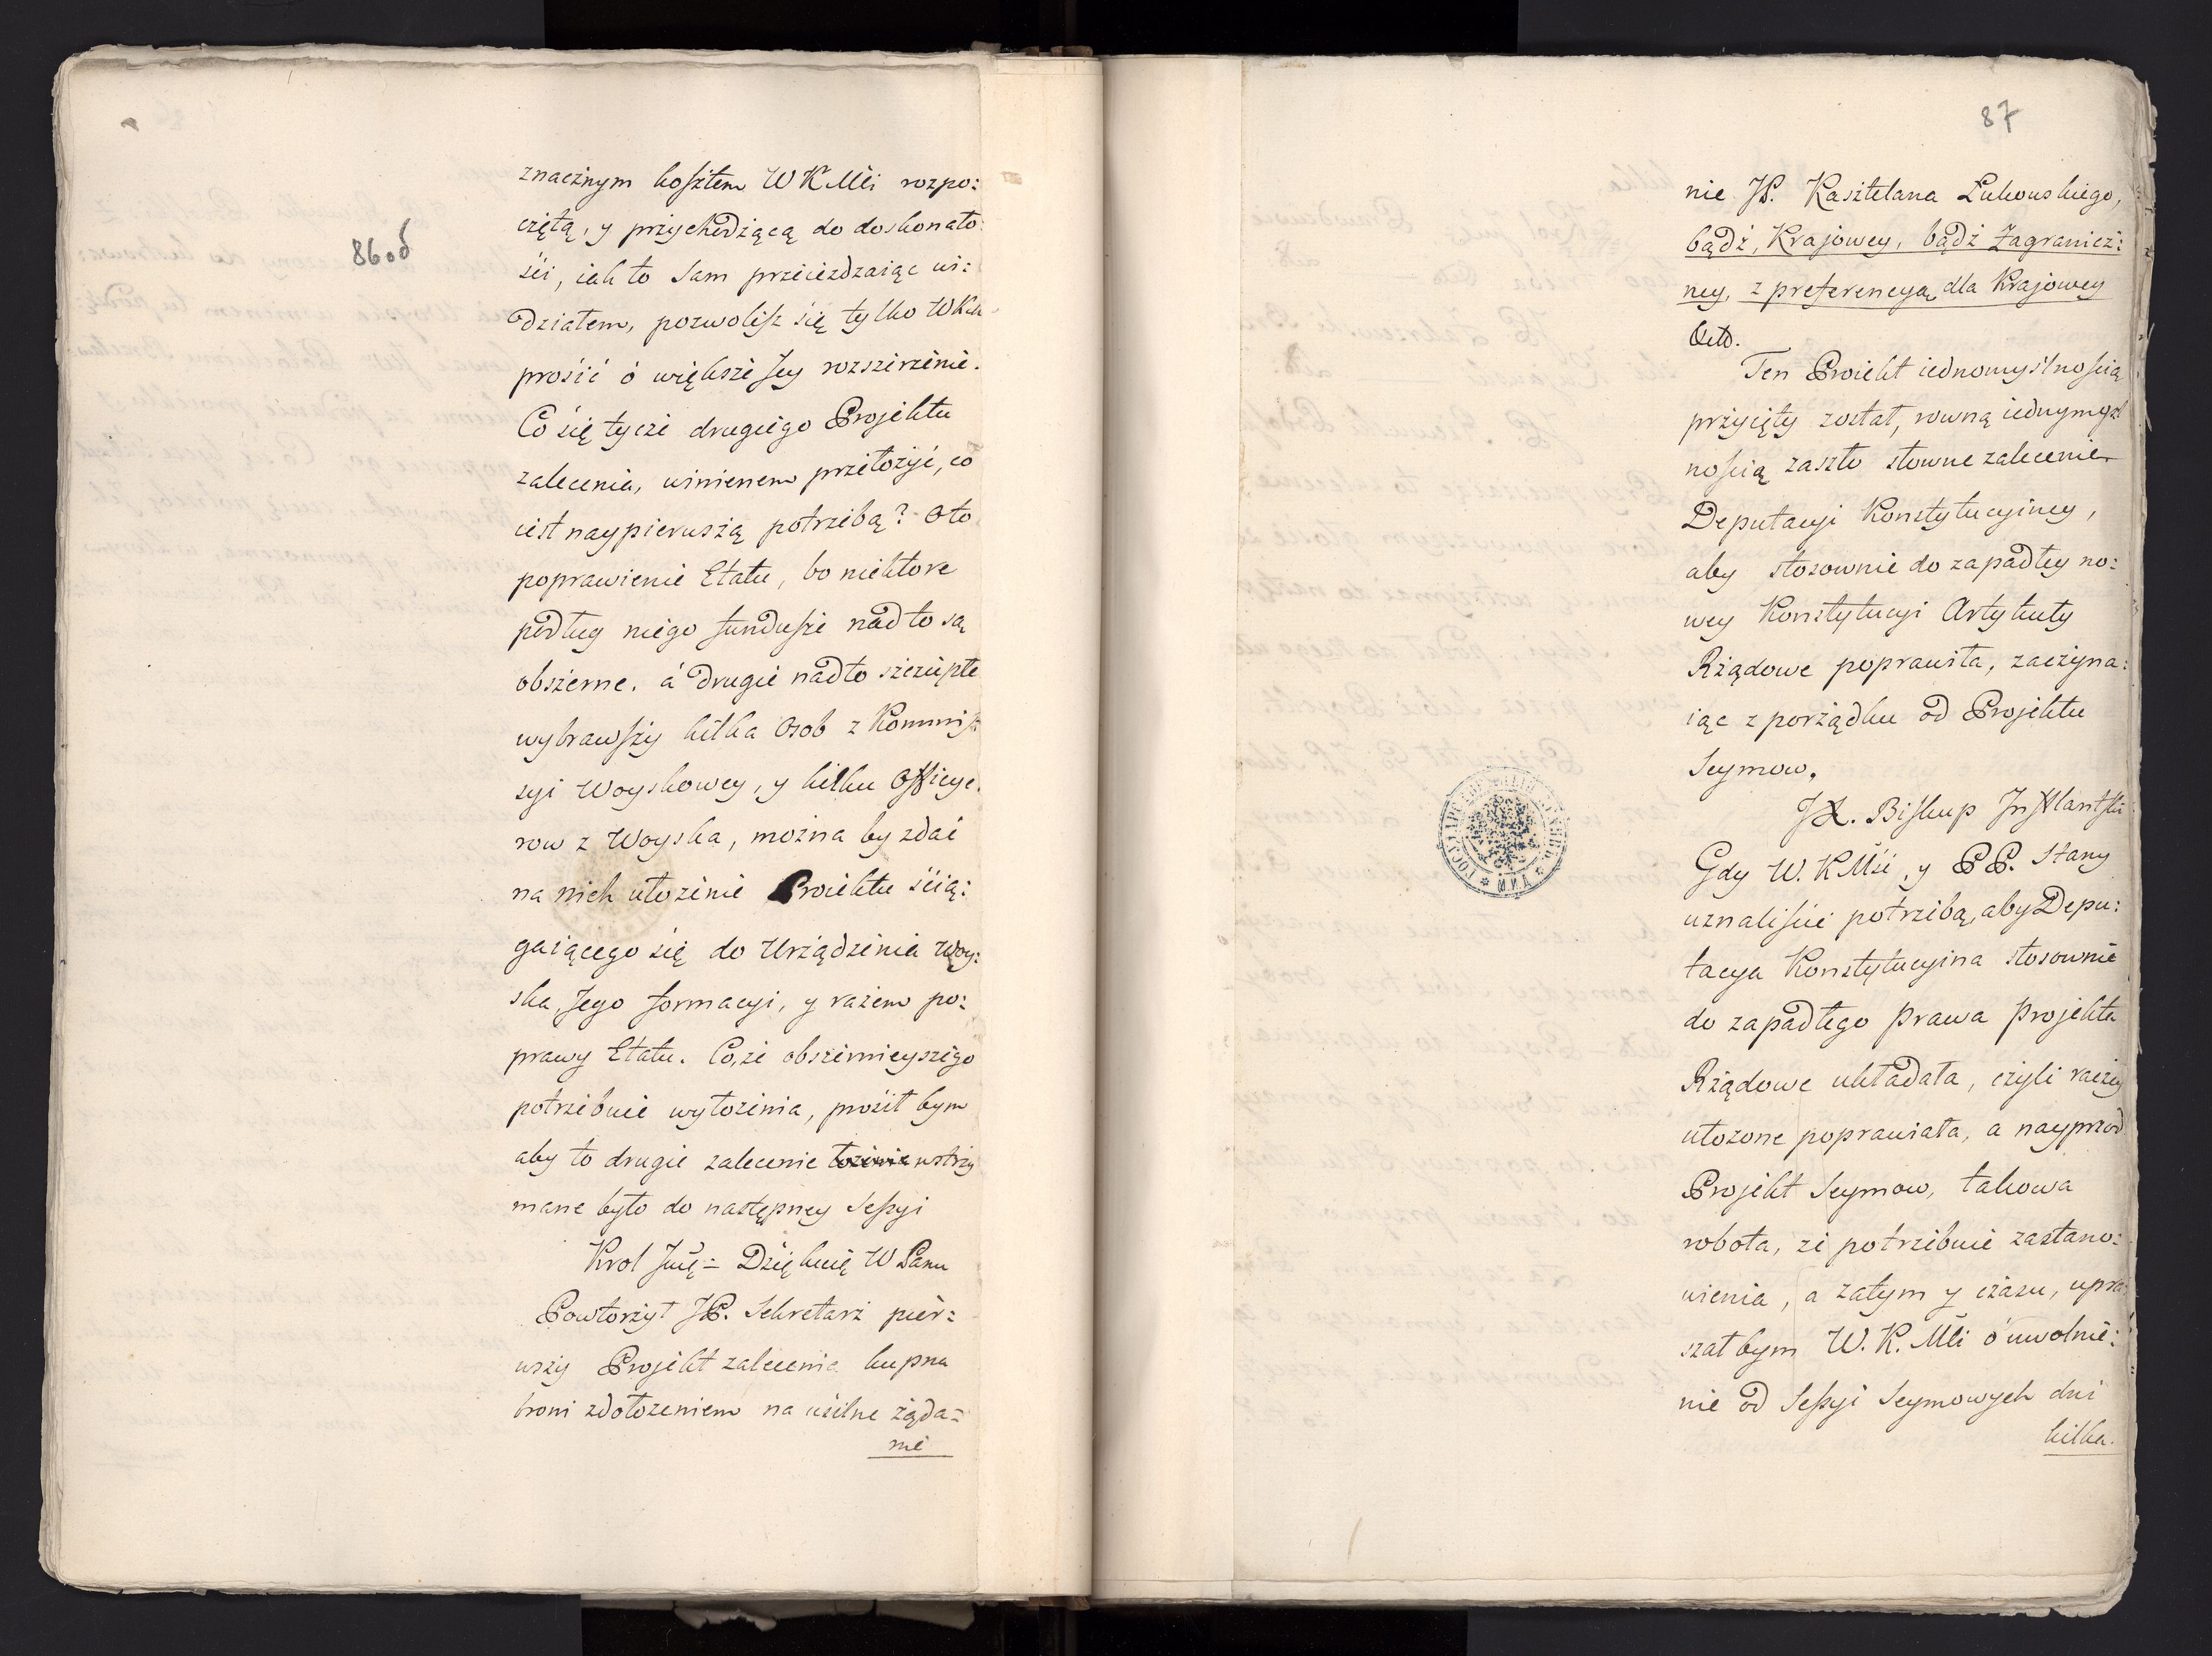 86 об
znacznym kosztem WKMci rozpo:
czętą, y przychodzącą do doskonało:
ści, iak to Sam przeiezdzaiąc wi:
działem, pozwolisz się tylko WKM
prosić o większe Jey rozszerzenie.
Co się tycze drugiego Projektu
zalecenia, winienem przełożyć, co
iest naypierwszą potrzebą? Oto
poprawienie Etatu, bo niektore
podług niego fundusze nadto są
obszerne, á drugie nadto szczupłe
wybrawszy kilka Osob z Kommis:
syi Woyskowey, y kilku Officye:
row z Woyska, można by zdać
na nich ułożenie Proiektu ścią:
gaiącego się do Urządzenia Woy:
ska, Jego formacyi, y razem po:
prawy Etatu. Co, że obszernieyszego
potrzebuie wyłożenia, prosił bym
aby to drugie zalecenie wstrzy
mane było do następney Sessyi
Krol Jmć = Dziękuię W Panu
Powtorzył JP. Sekretarz pier:
wszy Projekt zalecenia kupna
broni z dołożeniem na usilne żąda=
nie
87
nie JP. Kasztelana Łukowskiego,
bądź, Krajowey, bądź Zagranicz:
ney, z preferencyą dla Krajowey
Ten Proiekt iednomyślnością
przyięty został, rowną iednomyśl
nością zaszło słowne zalecenie
Deputacyi Konstytucyiney,
aby stosownie do zapadłey no:
wey Konstytucyi Artykuły
Rządowe poprawiła, zaczyna:
iąc z porządku od Projektu
Seymow.
JX. Biskup Inflantski
Gdy W. KMść, y PP. Stany
uznaliście potrzebą, aby Depu:
tacya Konstytucyina stosownie
do zapadłego Prawa Projekta
Rządowe układała, czyli raczey
ułożone poprawiała, a nayprzod
Projekt Seymow, takowa
robota, że potrzebuie zastano:
wienia, a zatym y czasu, upra:
szał bym W. K. Mci o uwolnie:
nie od Sessyi Seymowych dni
kilka.